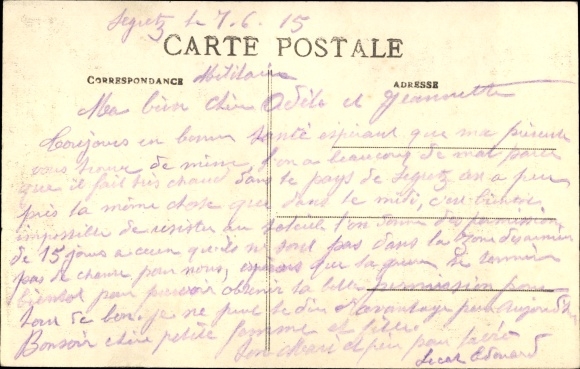 Segretz le 7.6.15
CARTE POSTALE
CORRESPONDANCE Militaire
ADRESSE
Ma bien chère Odile et Jeannette
Toujours en bonne santé espérant que ma présente
vous trouve de même, l'on a beaucoup de mal parce
que il fait très chaud dans le pays de Segretz on a peu
près la même chose que dans le midi, c'est
impossible de résister au soleil l'on donne des permissions
de 15 jours a ceux qu'ils ne sont pas dans la
pas de chance pour nous, espérons que la guerre se termine
bientot pour pouvoir obtenir la permission pour
tout de bon. je ne peut te dire d'avantage pour aujourd'hui
Bonsoir chère petite famme et fille.
Ton Mari et peu
Lucas Edouard